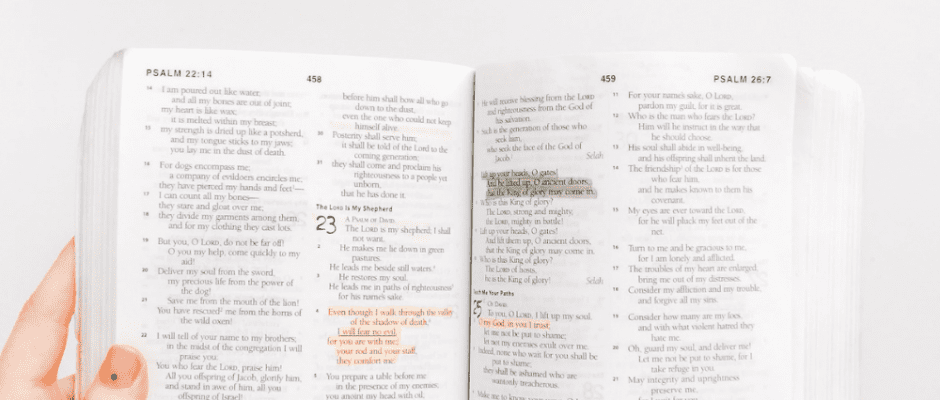 PSALM 22:14
458
14 I am poured out like water,
and all my bones are out of joint;
my heart is like wax;
it is melted within my breast;
15 my strength is dried up like a potsherd,
and my tongue sticks to my jaws;
you lay me in the dust of death.
16 For dogs encompass me;
a company of evildoers encircles me;
they have pierced my hands and feet—
17 I can count all my bones—
they stare and gloat over me;
18 they divide my garments among them,
and for my clothing they cast lots.
19 But you, O LORD, do not be far off!
O you my help, come quickly to my
aid!
20 Deliver my soul from the sword,
my precious life from the power of
the dog!
21 Save me from the mouth of the lion!
You have rescued me from the horns of
the wild oxen!
22 I will tell of your name to my brothers;
in the midst of the congregation I will
praise you:
You who fear the LORD, praise him!
All you offspring of Jacob, glorify him,
and stand in awe of him, all you
offspring of Israel!
before him shall bow all who go
down to the dust,
even the one who could not keep
himself alive.
30 Posterity shall serve him;
it shall be told of the Lord to the
coming generation;
31 they shall come and proclaim his
righteousness to a people yet
unborn,
that he has done it.
The LORD Is My Shepherd
23 A PSALM OF DAVID.
The LORD is my shepherd; I shall
not want.
2 He makes me lie down in green
pastures.
He leads me beside still waters.
3 He restores my soul.
He leads me in paths of righteousness
for his name's sake.
4 Even though I walk through the valley
of the shadow of death,
I will fear no evil,
for you are with me;
your rod and your staff,
they comfort me.
5 You prepare a table before me
in the presence of my enemies;
you anoint my head with oil;
459
PSALM 26:7
He will receive blessing from the LORD
and righteousness from the God of
his salvation.
Such is the generation of those who
seek him,
who seek the face of the God of
Jacob. Selah
Lift up your heads, O gates!
And be lifted up, O ancient doors,
that the King of glory may come in.
Who is this King of glory?
The LORD, strong and mighty,
the LORD, mighty in battle!
Lift up your heads, O gates!
And lift them up, O ancient doors,
that the King of glory may come in.
Who is this King of glory?
The LORD of hosts,
he is the King of glory! Selah
Me Your Paths
25 OF DAVID.
To you, O LORD, I lift up my soul.
O my God, in you I trust;
let me not be put to shame;
let not my enemies exult over me.
Indeed, none who wait for you shall be
put to shame;
they shall be ashamed who are
wantonly treacherous.
Make me to know
11 For your name's sake, O LORD,
pardon my guilt, for it is great.
12 Who is the man who fears the LORD?
Him will he instruct in the way that
he should choose.
13 His soul shall abide in well-being,
and his offspring shall inherit the land.
14 The friendship of the LORD is for those
who fear him,
and he makes known to them his
covenant.
15 My eyes are ever toward the LORD,
for he will pluck my feet out of the
net.
16 Turn to me and be gracious to me,
for I am lonely and afflicted.
17 The troubles of my heart are enlarged;
bring me out of my distresses.
18 Consider my affliction and my trouble,
and forgive all my sins.
19 Consider how many are my foes,
and with what violent hatred they
hate me.
20 Oh, guard my soul, and deliver me!
Let me not be put to shame, for I
take refuge in you.
21 May integrity and uprightness
preserve me,